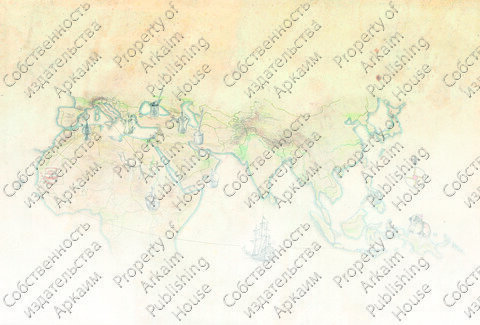 Собственность
издательства
Аркаим
Property of
Arkaim
Publishing
House
Собственность
издательства
Аркаим
Property of
Arkaim
Publishing
House
Собственность
издательства
Аркаим
Property of
Arkaim
Publishing
House
Собственность
издательства
Аркаим
Property of
Arkaim
Publishing
House
Собственность
издательства
Аркаим
Property of
Arkaim
Publishing
House
Собственность
издательства
Аркаим
Property of
Arkaim
Publishing
House